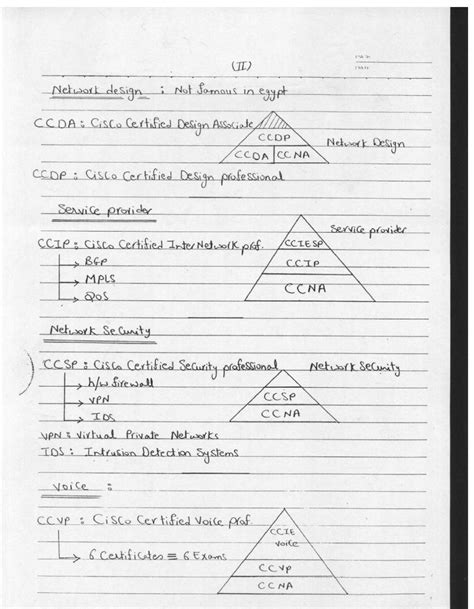 (II)
Network design : Not famous in egypt
CCDA : Cisco Certified Design Associate
CCDP
CCDA CCNA
Network Design
CCDP : Cisco Certified Design professional
Service provider
Service provider
CCIP : Cisco Certified InterNetwork prof.
CCIESP
→ BGP
CCIP
→ MPLS
CCNA
→ QOS
Network Security
CCSP : Cisco Certified Security professional
Network Security
→ h/w firewall
→ VPN
CCSP
→ IDS
CCNA
VPN : Virtual Private Networks
IDS : Intrusion Detection Systems
Voice :
CCVP : Cisco Certified Voice prof.
CCIE
Voice
→ 6 Certificates ≡ 6 Exams
CCVP
CCNA